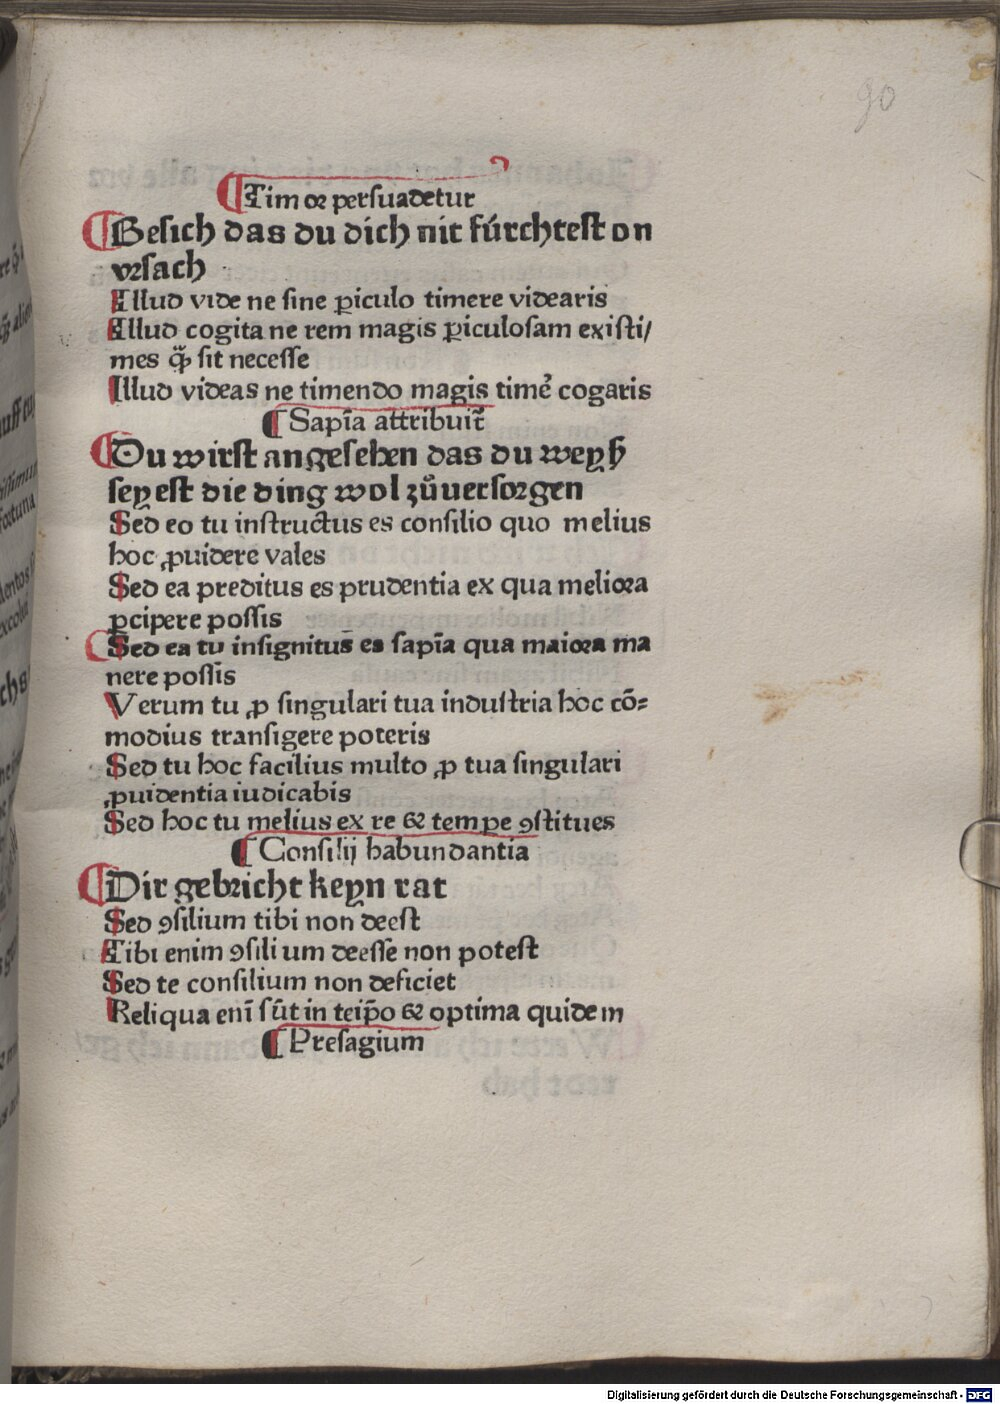 90
¶Timor persuadetur
¶Besich das du dich nit fúrchtest on
vrsach
Illud vide ne sine ꝑiculo timere videaris
Illud cogita ne rem magis ꝑiculosam existi/
mes ꝙ̃ sit necesse
Illud videas ne timendo magis timẽ cogaris
¶Sapĩa attribuit̃
¶Du wirst angesehen das du weyß
seyest die ding wol zůuersorgen
Sed eo tu instructus es consilio quo melius
hoc ꝓuidere vales
Sed ea preditus es prudentia ex qua meliora
ꝑcipere possis
¶Sed ea tu insignitus̃ es sapĩa qua maiora ma
nere possis
Verum tu ꝓ singulari tua industria hoc cõ⸗
modius transigere poteris
Sed tu hoc facilius multo ꝓ tua singulari
ꝓuidentia iudicabis
Sed hoc tu melius ex re & tempe ꝯstitues
¶Consilij habundantia
¶Dir gebricht keyn rat
Sed ꝯsilium tibi non deest
Tibi enim ꝯsilium deesse non potest
Sed te consilium non deficiet
Reliqua enĩ sũt in teip̃o & optima quidem
¶Presagium
Digitalisierung gefördert durch die Deutsche Forschungsgemeinschaft - DFG